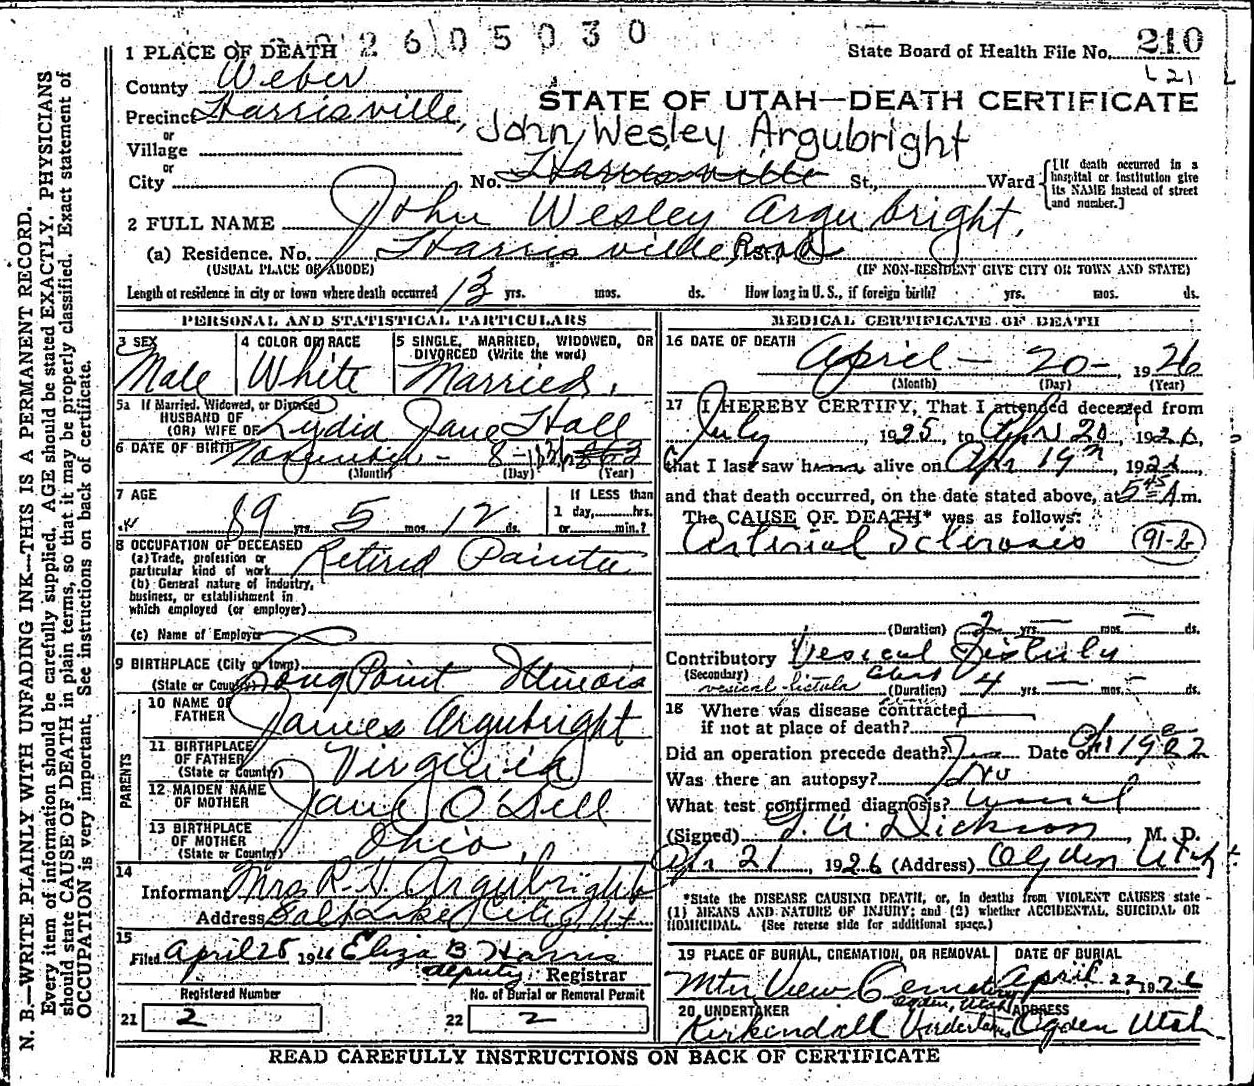 2605030
1 PLACE OF DEATH
State Board of Health File No. 210
County Weber
L 21
Precinct Harrisville,
STATE OF UTAH—DEATH CERTIFICATE
or
Village
John Wesley Argubright
or
City No. Harrisville St., Ward
[If death occurred in a hospital or institution give its NAME instead of street and number.]
2 FULL NAME John Wesley Argubright,
(a) Residence. No. Harrisville, Road
(USUAL PLACE OF ABODE) (IF NON-RESIDENT GIVE CITY OR TOWN AND STATE)
Length of residence in city or town where death occurred 13 yrs. mos. ds. How long in U. S., if foreign birth? yrs. mos. ds.
PERSONAL AND STATISTICAL PARTICULARS
3 SEX
Male
4 COLOR OR RACE
White
5 SINGLE, MARRIED, WIDOWED, OR DIVORCED (Write the word)
Married,
5a If Married, Widowed, or Divorced
HUSBAND OF
(OR) WIFE OF Lydia Jane Hall
6 DATE OF BIRTH November - 8 - 1836
(Month) (Day) (Year)
7 AGE
89 yrs. 5 mos. 12 ds.
If LESS than
1 day, hrs.
or min.?
8 OCCUPATION OF DECEASED
(a) Trade, profession or
particular kind of work Retired Painter
(b) General nature of industry,
business, or establishment in
which employed (or employer)
(c) Name of Employer
9 BIRTHPLACE (City or town)
(State or Country) Long Point Illinois
PARENTS
10 NAME OF
FATHER James Argubright
11 BIRTHPLACE
OF FATHER
(State or Country) Virginia
12 MAIDEN NAME
OF MOTHER Jane O'Dell
13 BIRTHPLACE
OF MOTHER
(State or Country) Ohio
14
Informant Mrs R. H. Argubright
Address Salt Lake City, Ut
15
Filed April 25 1926 Eliza B Harris
deputy Registrar
Registered Number
21 2
No. of Burial or Removal Permit
22 2
MEDICAL CERTIFICATE OF DEATH
16 DATE OF DEATH
April - 20 - 1926
(Month) (Day) (Year)
17 I HEREBY CERTIFY, That I attended deceased from
July, 1925, to Apr 20, 1926,
that I last saw him alive on Apr 19th, 1926,
and that death occurred, on the date stated above, at 5 45 A.m.
The CAUSE OF DEATH* was as follows:
Arterial Sclerosis 91-b
(Duration) 2 yrs. — mos. — ds.
Contributory Vesical Fistula
(Secondary) vesical fistula
(Duration) 4 yrs. — mos. — ds.
18 Where was disease contracted
if not at place of death?
Did an operation precede death? Yes Date of 1922
Was there an autopsy? No
What test confirmed diagnosis? usual
(Signed) Dickson, M. D.
Apr 21, 1926 (Address) Ogden Utah
*State the DISEASE CAUSING DEATH, or, in deaths from VIOLENT CAUSES state
(1) MEANS AND NATURE OF INJURY; and (2) whether ACCIDENTAL, SUICIDAL OR
HOMICIDAL. (See reverse side for additional space.)
19 PLACE OF BURIAL, CREMATION, OR REMOVAL
Mtn View Cemetery
Ogden, Utah
DATE OF BURIAL
April 22, 1926
20 UNDERTAKER
Kirkendall Undertaking
ADDRESS
Ogden Utah
READ CAREFULLY INSTRUCTIONS ON BACK OF CERTIFICATE
N. B.—WRITE PLAINLY WITH UNFADING INK—THIS IS A PERMANENT RECORD.
Every item of information should be carefully supplied. AGE should be stated EXACTLY. PHYSICIANS
should state CAUSE OF DEATH in plain terms, so that it may be properly classified. Exact statement of
OCCUPATION is very important. See instructions on back of certificate.